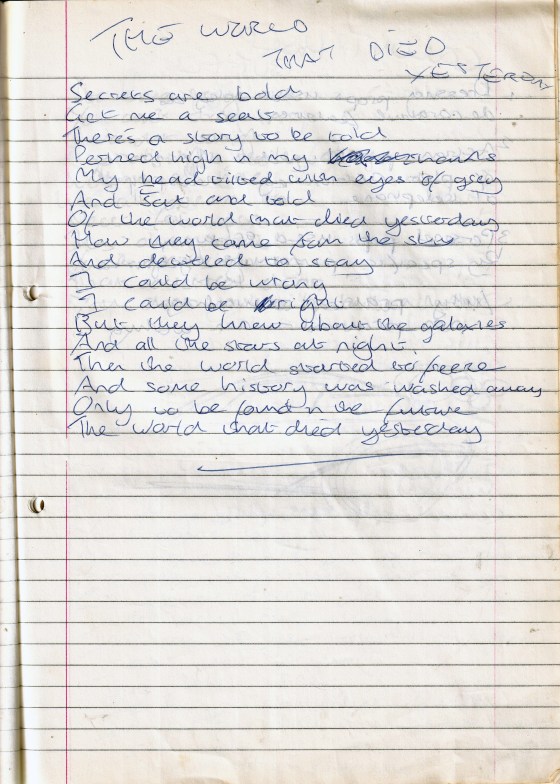 THE WORLD
THAT DIED
YESTERDAY
Secrets are bold
Get me a seat
There's a story to be told
Perched high in my hands
My head tilted with eyes of grey
And Sat and told
Of the world that died yesterday
How they came from the stars
And decided to stay
I could be wrong
I could be right
But they knew about the galaxies
And all the stars at night.
Then the world started to freeze
And some history was washed away
Only to be found in the future
The world that died yesterday